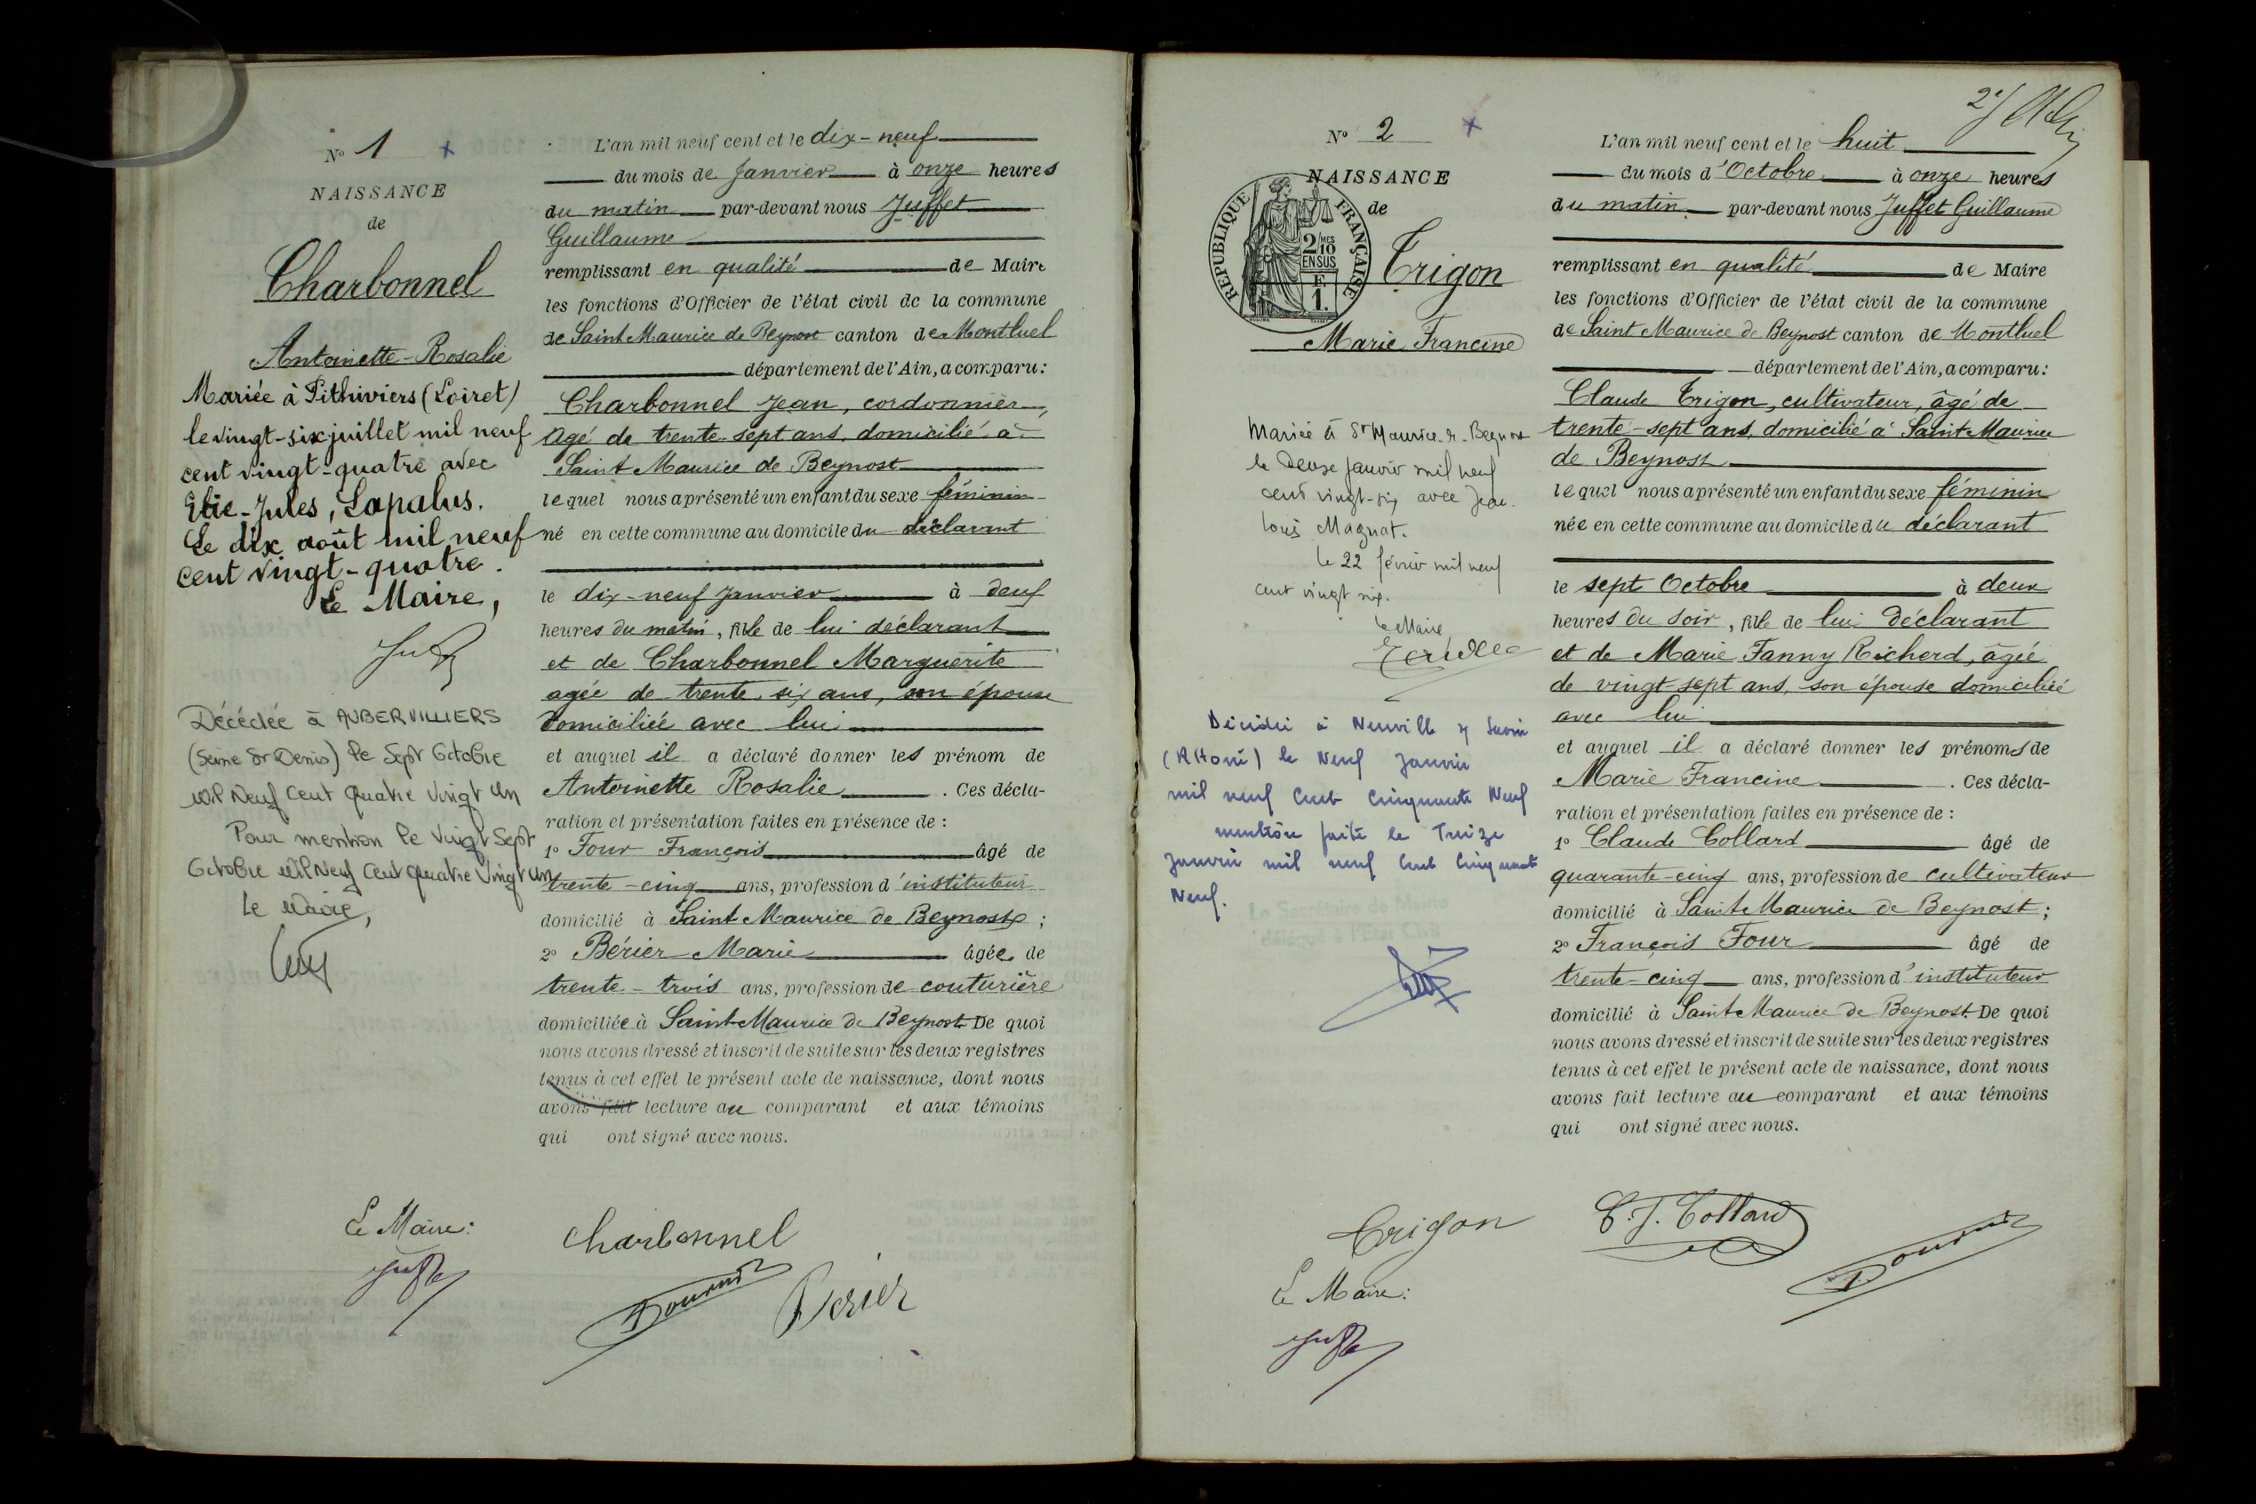 N° 1
NAISSANCE
de
Charbonnel
Antoinette-Rosalie
Mariée à Pithiviers (Loiret)
le vingt-six juillet mil neuf
cent vingt-quatre avec
Elie-Jules, Lapalus.
Le dix août mil neuf
cent vingt-quatre.
Le Maire,
Décédée à AUBERVILLIERS
(Seine St Denis) le Sept Octobre
Mil Neuf Cent Quatre Vingt Un
Pour mention le Vingt Sept
Octobre Mil Neuf Cent Quatre Vingt Un
Le Maire,
L'an mil neuf cent et le dix-neuf
du mois de Janvier à onze heures
du matin par-devant nous Juffet
Guillaume
remplissant en qualité de Maire
les fonctions d'Officier de l'état civil de la commune
de Saint Maurice de Beynost canton de Montluel
département de l'Ain, a comparu:
Charbonnel Jean, cordonnier,
agé de trente-sept ans, domicilié à
Saint Maurice de Beynost
lequel nous a présenté un enfant du sexe féminin
né en cette commune au domicile du déclarant
le dix-neuf Janvier à deuf
heures du matin, fille de lui déclarant
et de Charbonnel Marguerite
agée de trente six ans, son épouse
domiciliée avec lui
et auquel il a déclaré donner les prénom de
Antoinette Rosalie. Ces décla-
ration et présentation faites en présence de :
1° Four François âgé de
trente-cinq ans, profession d'instituteur
domicilié à Saint Maurice de Beynost ;
2° Bérier Marie âgée de
trente-trois ans, profession de couturière
domiciliée à Saint Maurice de Beynost De quoi
nous avons dressé et inscrit de suite sur les deux registres
tenus à cet effet le présent acte de naissance, dont nous
avons fait lecture au comparant et aux témoins
qui ont signé avec nous.
Le Maire:
Charbonnel
Bérier
N° 2
NAISSANCE
de
REPUBLIQUE FRANÇAISE
2/MES
10
EN SUS
F.
1.
Trigon
Marie Francine
Mariée à St Maurice-d-Beynost
le Douze Janvier mil neuf
cent vingt-six avec Jean-
Louis Magnat.
le 22 février mil neuf
cent vingt six.
Le Maire
Décédée à Neuville s/ Saône
(Rhône) le Neuf Janvier
mil neuf Cent Cinquante Neuf
mention faite le Treize
Janvier mil neuf Cent Cinquante
Neuf.
Le Secrétaire de Mairie
délégué à l'Etat Civil
L'an mil neuf cent et le huit
du mois d'Octobre à onze heures
du matin par-devant nous Juffet Guillaume
remplissant en qualité de Maire
les fonctions d'Officier de l'état civil de la commune
de Saint Maurice de Beynost canton de Montluel
département de l'Ain, a comparu:
Claude Trigon, cultivateur, âgé de
trente-sept ans, domicilié à Saint Maurice
de Beynost
lequel nous a présenté un enfant du sexe féminin
née en cette commune au domicile du déclarant
le sept Octobre à deux
heures du soir, fille de lui déclarant
et de Marie Fanny Richerd, âgée
de vingt-sept ans, son épouse domiciliée
avec lui
et auquel il a déclaré donner les prénoms de
Marie Francine. Ces décla-
ration et présentation faites en présence de :
1° Claude Collard âgé de
quarante-cinq ans, profession de cultivateur
domicilié à Saint Maurice de Beynost ;
2° François Four âgé de
trente-cinq ans, profession d'instituteur
domicilié à Saint Maurice de Beynost De quoi
nous avons dressé et inscrit de suite sur les deux registres
tenus à cet effet le présent acte de naissance, dont nous
avons fait lecture au comparant et aux témoins
qui ont signé avec nous.
Trigon
C. J. Collard
Le Maire: